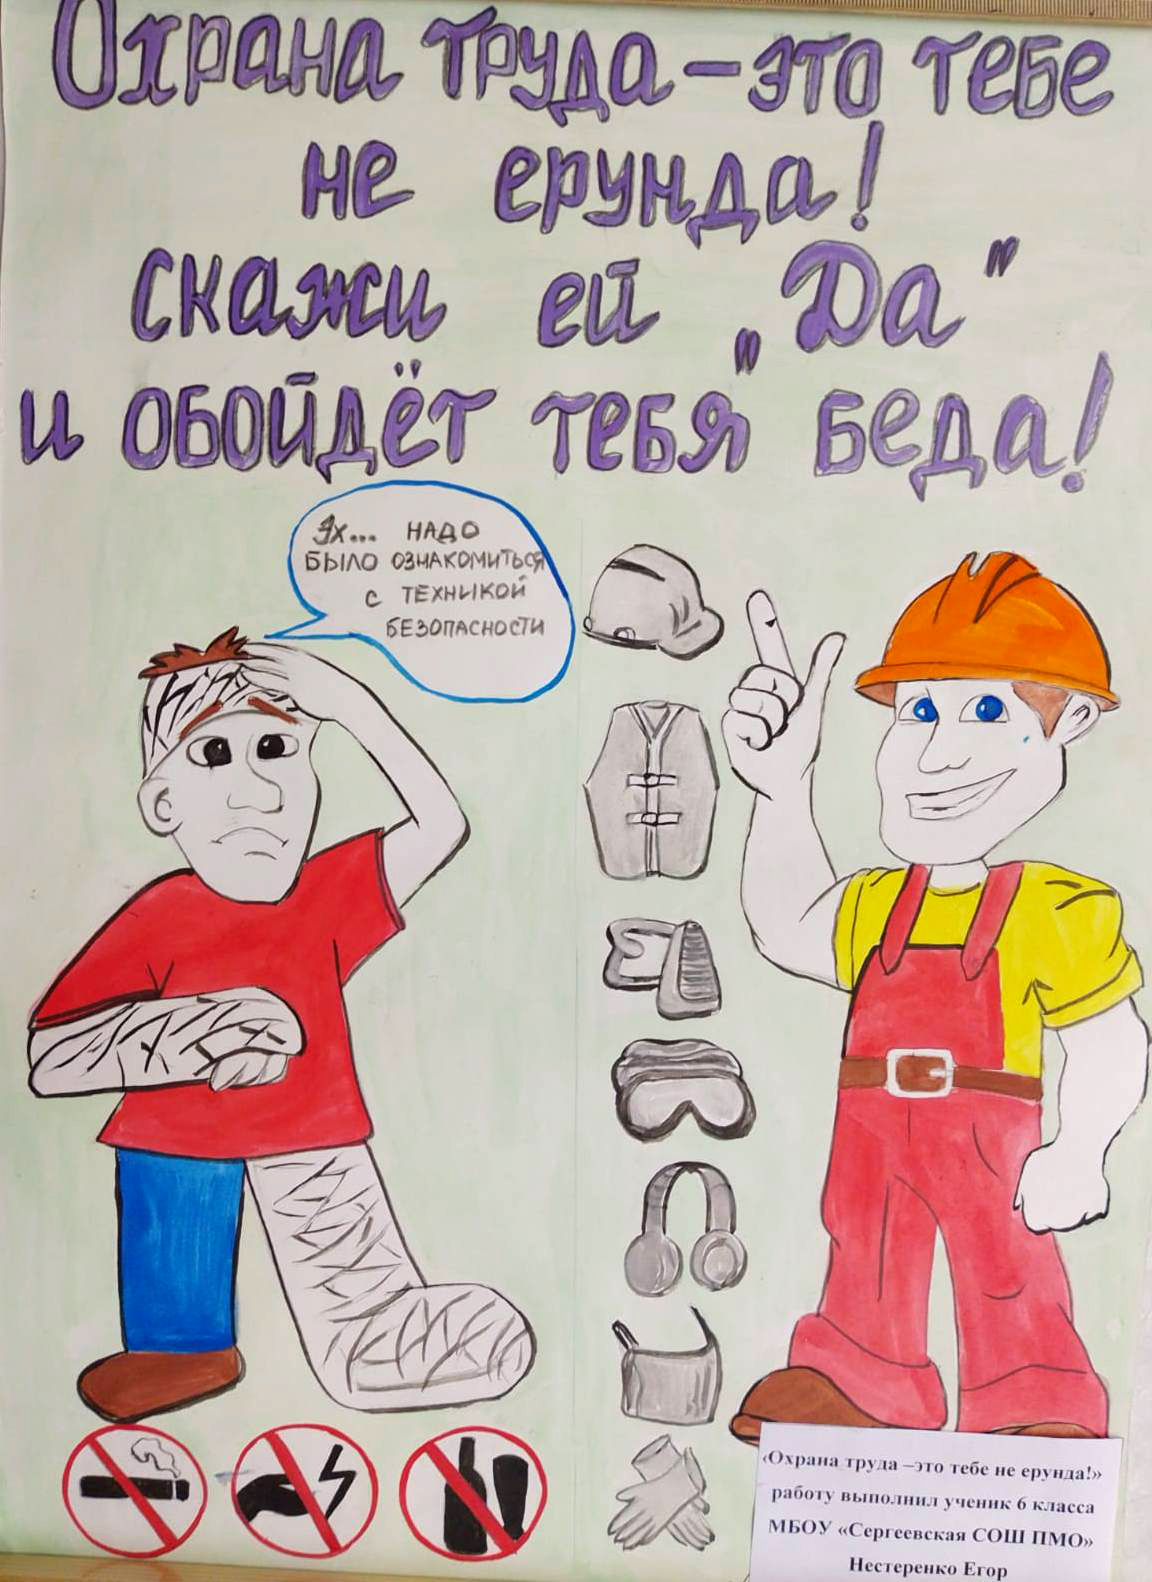 Охрана труда – это тебе
не ерунда!
скажи ей „Да"
и обойдёт тебя" беда!
Эх... НАДО
БЫЛО ОЗНАКОМИТЬСЯ
С ТЕХНИКОЙ
БЕЗОПАСНОСТИ
«Охрана труда –это тебе не ерунда!»
работу выполнил ученик 6 класса
МБОУ «Сергеевская СОШ ПМО»
Нестеренко Егор